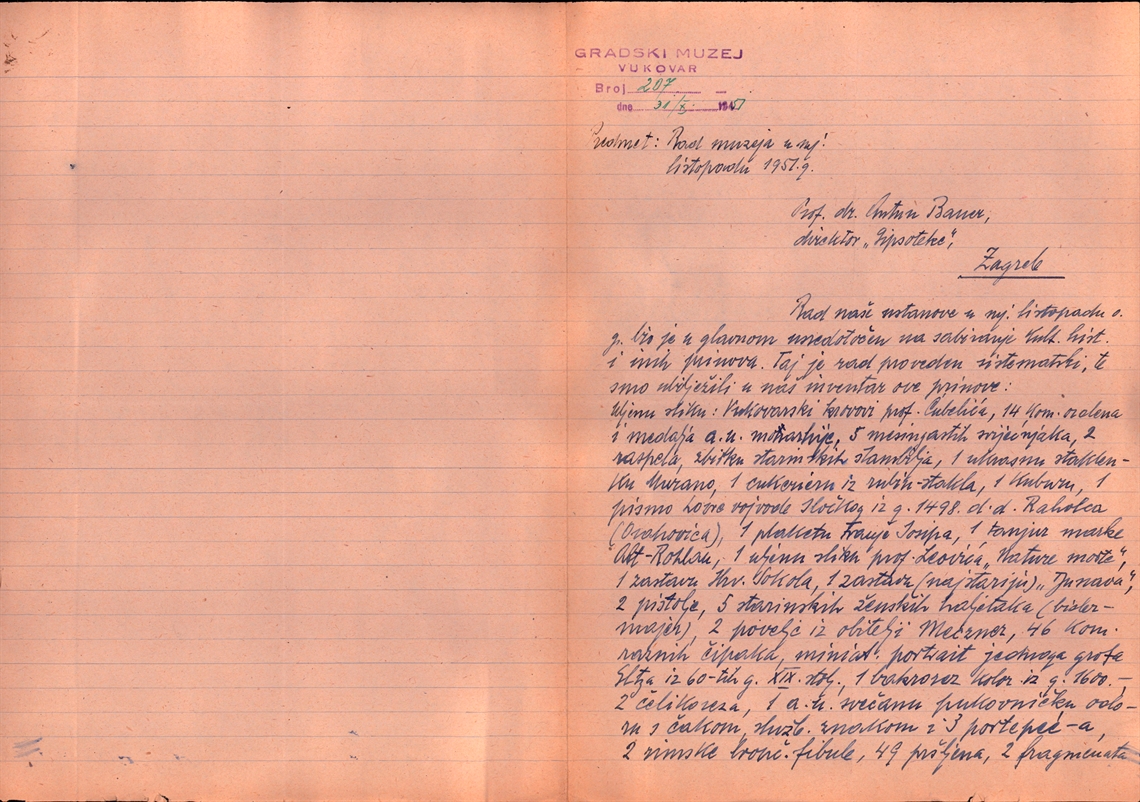 GRADSKI MUZEJ
VUKOVAR
Broj 207
dne 31/X. 1951
Predmet: Rad muzeja u mj.
listopadu 1951.g.
Prof. dr. Antun Bauer,
direktor „Gipsoteke“,
Zagreb
Rad naše ustanove u mj. listopadu o.
g. bio je u glavnom usredotočen na sabiranje kult. hist.
i inih prinova. Taj je rad proveden sistematski, te
smo ubilježili u naš inventar ove prinove:
Uljenu sliku: Vukovarski krovovi prof. Čubelića, 14 kom. ordena
i medalja a.u. monarhije, 5 mesingastih svijećnjaka, 2
raspela, zbirku starinskih štambilja, 1 ukrasnu staklen-
ku Murano, 1 cukerieru iz rubin-stakla, 1 kuburu, 1
pismo Lovre vojvode Iločkog iz g. 1498. d.d. Raholca
(Orahovica), 1 plaketu Franje Josipa, 1 tanjur marke
Alt-Rohlau, 1 uljenu sliku prof. Leovića „Nature morte“,
1 zastavu Hrv. Sokola, 1 zastavu (najstariju) „Dunava“,
2 pištolje, 5 starinskih ženskih haljetaka (bider-
majer), 2 povelje iz obitelji Meczner, 46 kom.
raznih čipaka, miniat. portrait jednoga grofa
Eltza iz 60-tih g. XIX. stolj., 1 bakrorez kolor iz g. 1600.-,
2 čelikoreza, 1 a.u. svečanu pukovničku odo-
ru s čakom, služb. znakom i 3 portepeé-a,
2 rimske fibule, 49 pršljena, 2 fragmenata